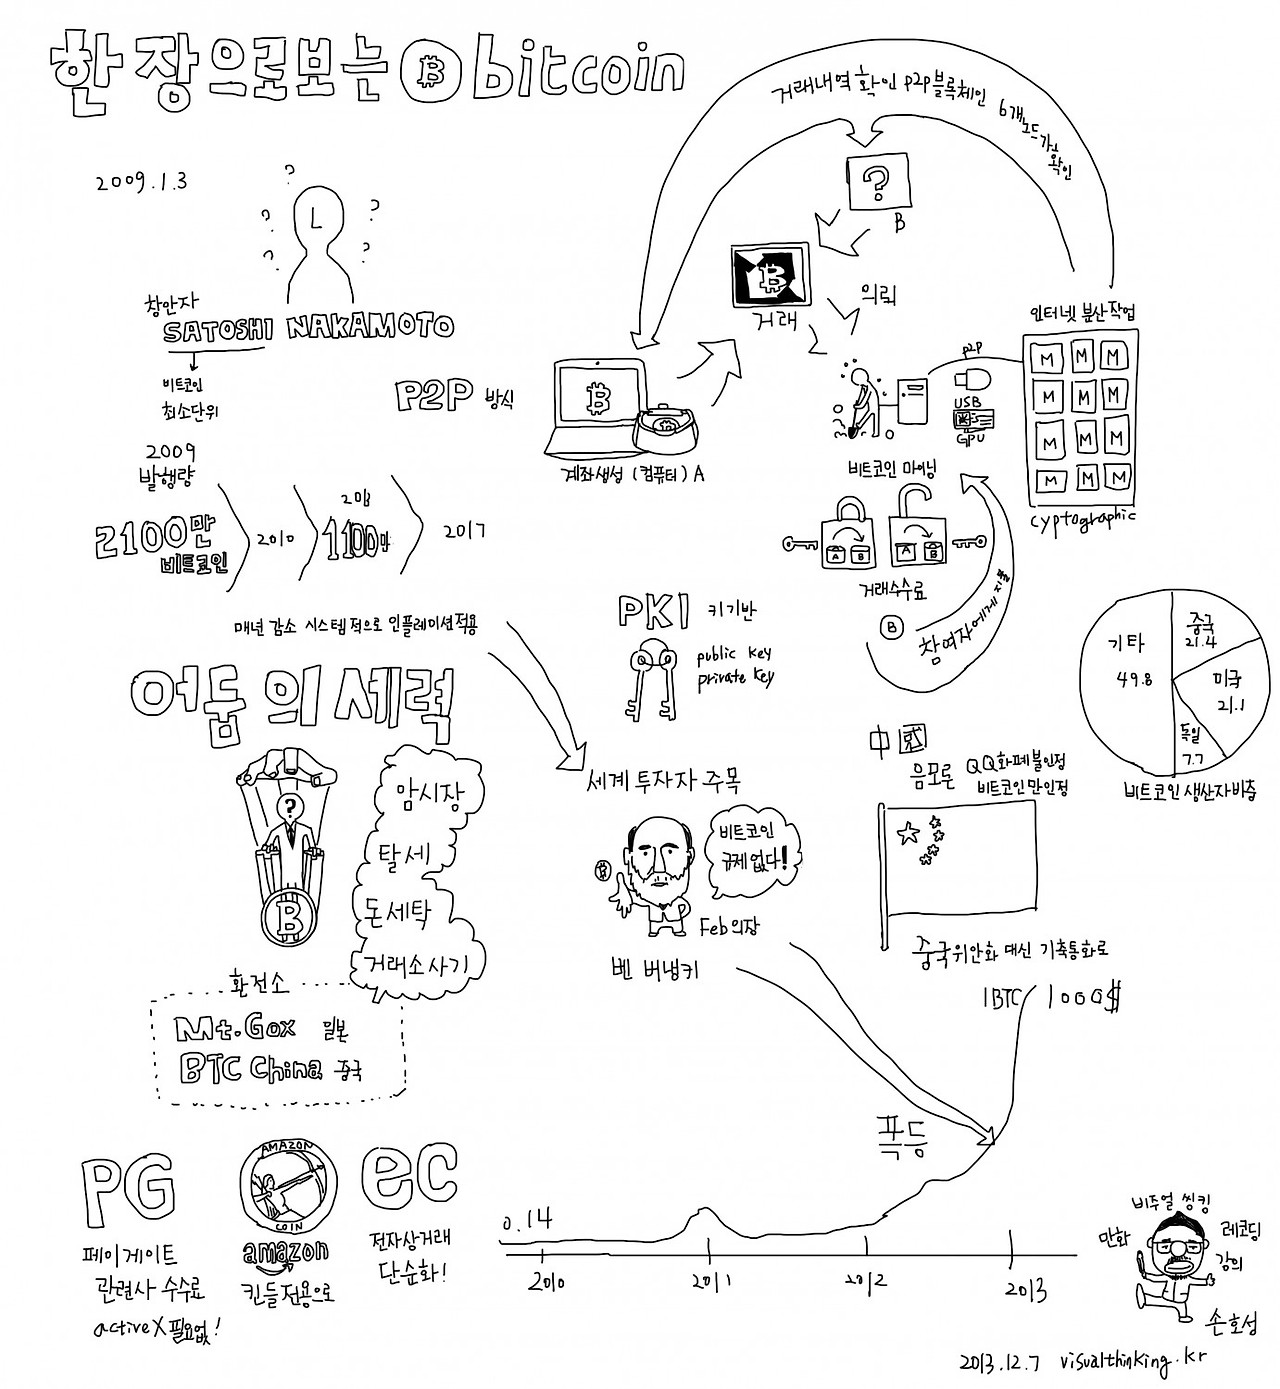 한 장으로보는 bitcoin
2009.1.3
L
창안자
SATOSHI NAKAMOTO
비트코인
최소단위
P2P 방식
2009
발행량
2100만
비트코인
2010
1100만
2017
매년 감소 시스템적으로 인플레이션적용
거래내역 확인 P2P블록체인 6개노드가
확인
?
B
거래
의뢰
계좌생성 (컴퓨터) A
비트코인 마이닝
P2P
USB
GPU
인터넷 분산작업
M M M
M M M
M M M
M M M
cyptographic
A B
A B
거래수수료
B
참여자에게 지불
PKI 키기반
public key
private key
기타
49.8
중국
21.4
미국
21.1
독일
7.7
비트코인 생산자비율
어둠의세력
?
암시장
탈세
돈세탁
거래소사기
환전소
Mt.Gox 일본
BTC China 중국
세계 투자자 주목
비트코인
규제없다!
Feb의장
벤 버냉키
中國
음모론 QQ화폐불인정
비트코인만인정
중국위안화 대신 기축통화로
1BTC 1000$
폭등
0.14
2010 2011 2012 2013
PG
페이게이트
관련사 수수료
activeX 필요없!
AMAZON
COIN
amazon
킨들전용으로
ec
전자상거래
단순화!
비주얼 씽킹
만화
레코딩
강의
손호성
2013.12.7 visualthinking.kr